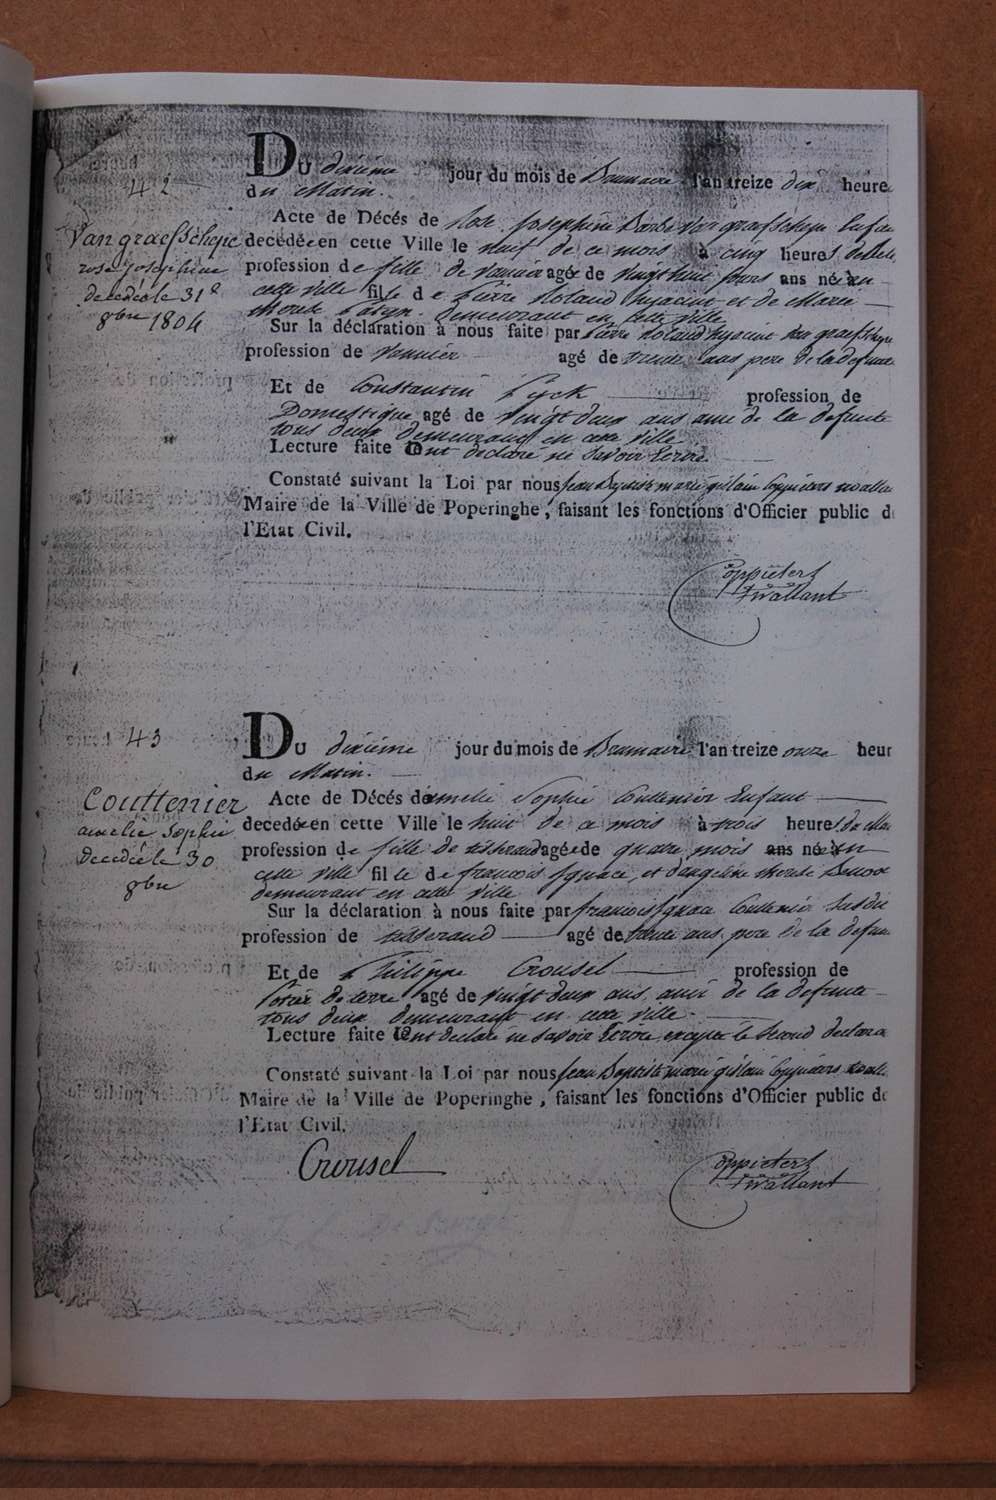 42
Van graefschepe
rose josephine
decedée le 31e
8bre 1804
Du dixième jour du mois de Brumaire l'an treize dix heure
du Matin.
Acte de Décés de Rose Josephine Barbe Van graefschepe Enfant
decedée en cette Ville le neuf de ce mois à cinq heures
profession de fille de vannier agée de vingt huit jours ans née en
cette ville fille de Pierre Roland hyacint et de Marie
demeurant en cette ville
Sur la déclaration à nous faite par Pierre Roland hyacint Van graefschepe
profession de vannier agé de trente ans pere de la defunte
Et de Constantin Pyck profession de
Domestique agé de vingt deux ans ami de la defunte
tous deux demeurant en cette ville
Lecture faite ont declaré ne savoir Ecrire
Constaté suivant la Loi par nous Jean Baptiste marie gislain Coppieters
Maire de la Ville de Poperinghe, faisant les fonctions d'Officier public d
l'Etat Civil.
Coppieters
Twallant
43
Couttenier
amelie Sophie
decedée le 30
8bre
Du dixième jour du mois de Brumaire l'an treize onze heur
du Matin.
Acte de Décés de amelie Sophie Couttenier Enfant
decedée en cette Ville le huit de ce mois à trois heures
profession de fille de tisserand agée de quatre mois ans née en
cette ville fille de francois Ignace et d'angeline therese
demeurant en cette ville
Sur la déclaration à nous faite par francois Ignace Couttenier
profession de tisserand agé de trente ans pere de la defun
Et de Philippe Crousel profession de
Potier de terre agé de vingt deux ans ami de la defunte
tous deux demeurant en cette ville.
Lecture faite ont declaré ne savoir Ecrire excepté le Second declara
Constaté suivant la Loi par nous Jean Baptiste marie gislain Coppieters
Maire de la Ville de Poperinghe, faisant les fonctions d'Officier public de
l'Etat Civil.
Crousel
Coppieters
Twallant